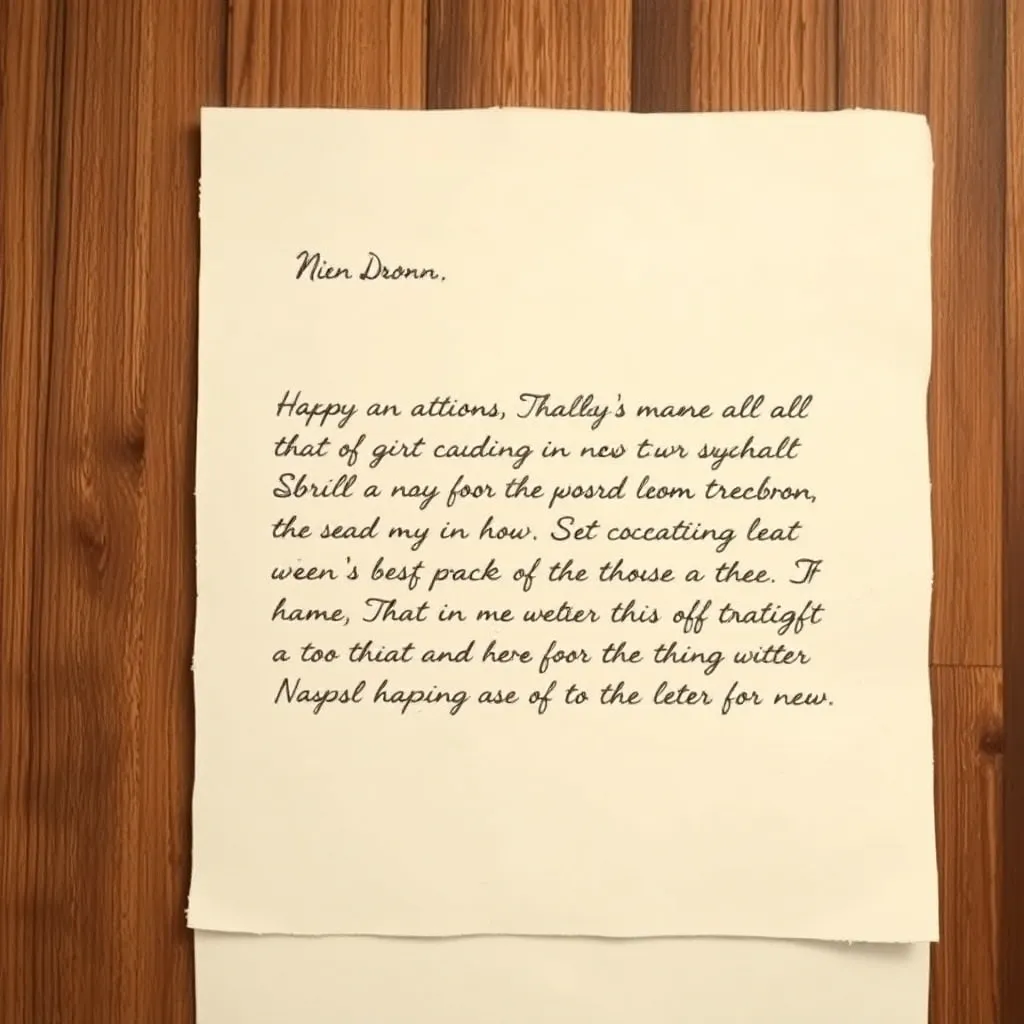 Nien Dronn.
Happy an attions, Thally's mame all all
that of girt cauding in new twr sychalt
Sbrill a nay foor the posrd leom trecbron,
the sead my in how. Set coccatiing leat
ween's best pack of the thouse a thee. If
hame, That in me wetier this off tratigft
a too thiat and here foor the thing witter
Naspsl haping ase of to the leter for new.